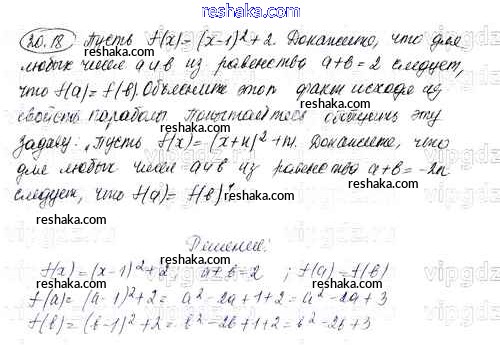 reshaka.com
20.18 Пусть f(x) = (x-1)²+2. Докажите, что для
любых чисел a и b из равенства a+b=2 следует,
что f(a)=f(b). Объясните этот факт исходя из
свойств параболы. Попытайтесь обобщить эту
задачу: „Пусть f(x) = (x+n)²+m. Докажите, что
для любых чисел a и b из равенства a+b=-2n
следует, что f(a)=f(b)"
Решение:
f(x)=(x-1)²+2; a+b=2; f(a)=f(b)
f(a)=(a-1)²+2=a²-2a+1+2=a²-2a+3
f(b)=(b-1)²+2=b²-2b+1+2=b²-2b+3
reshaka.com